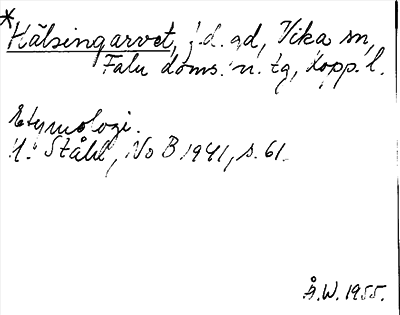 *Hälsingarvet, f.d. gd, Vika sn,
Falu doms. n. tg, Kopp. l.
Etymologi.
H. Ståhl, NoB 1941, s. 61.
Å.W. 1955.